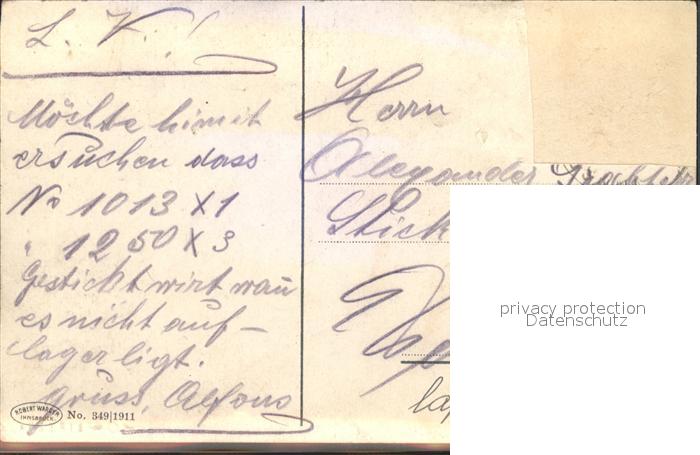 L. V.!
Möchte himit
ersuchen dass
No 1013 X 1
" 1250 X 3
Gestickt wirt wan
es nicht auf-
lager ligt.
Gruss, Alfons
ROBERT WARGER
INNSBRUCK
No. 349|1911
Herrn
Alexander
Stick
privacy protection
Datenschutz